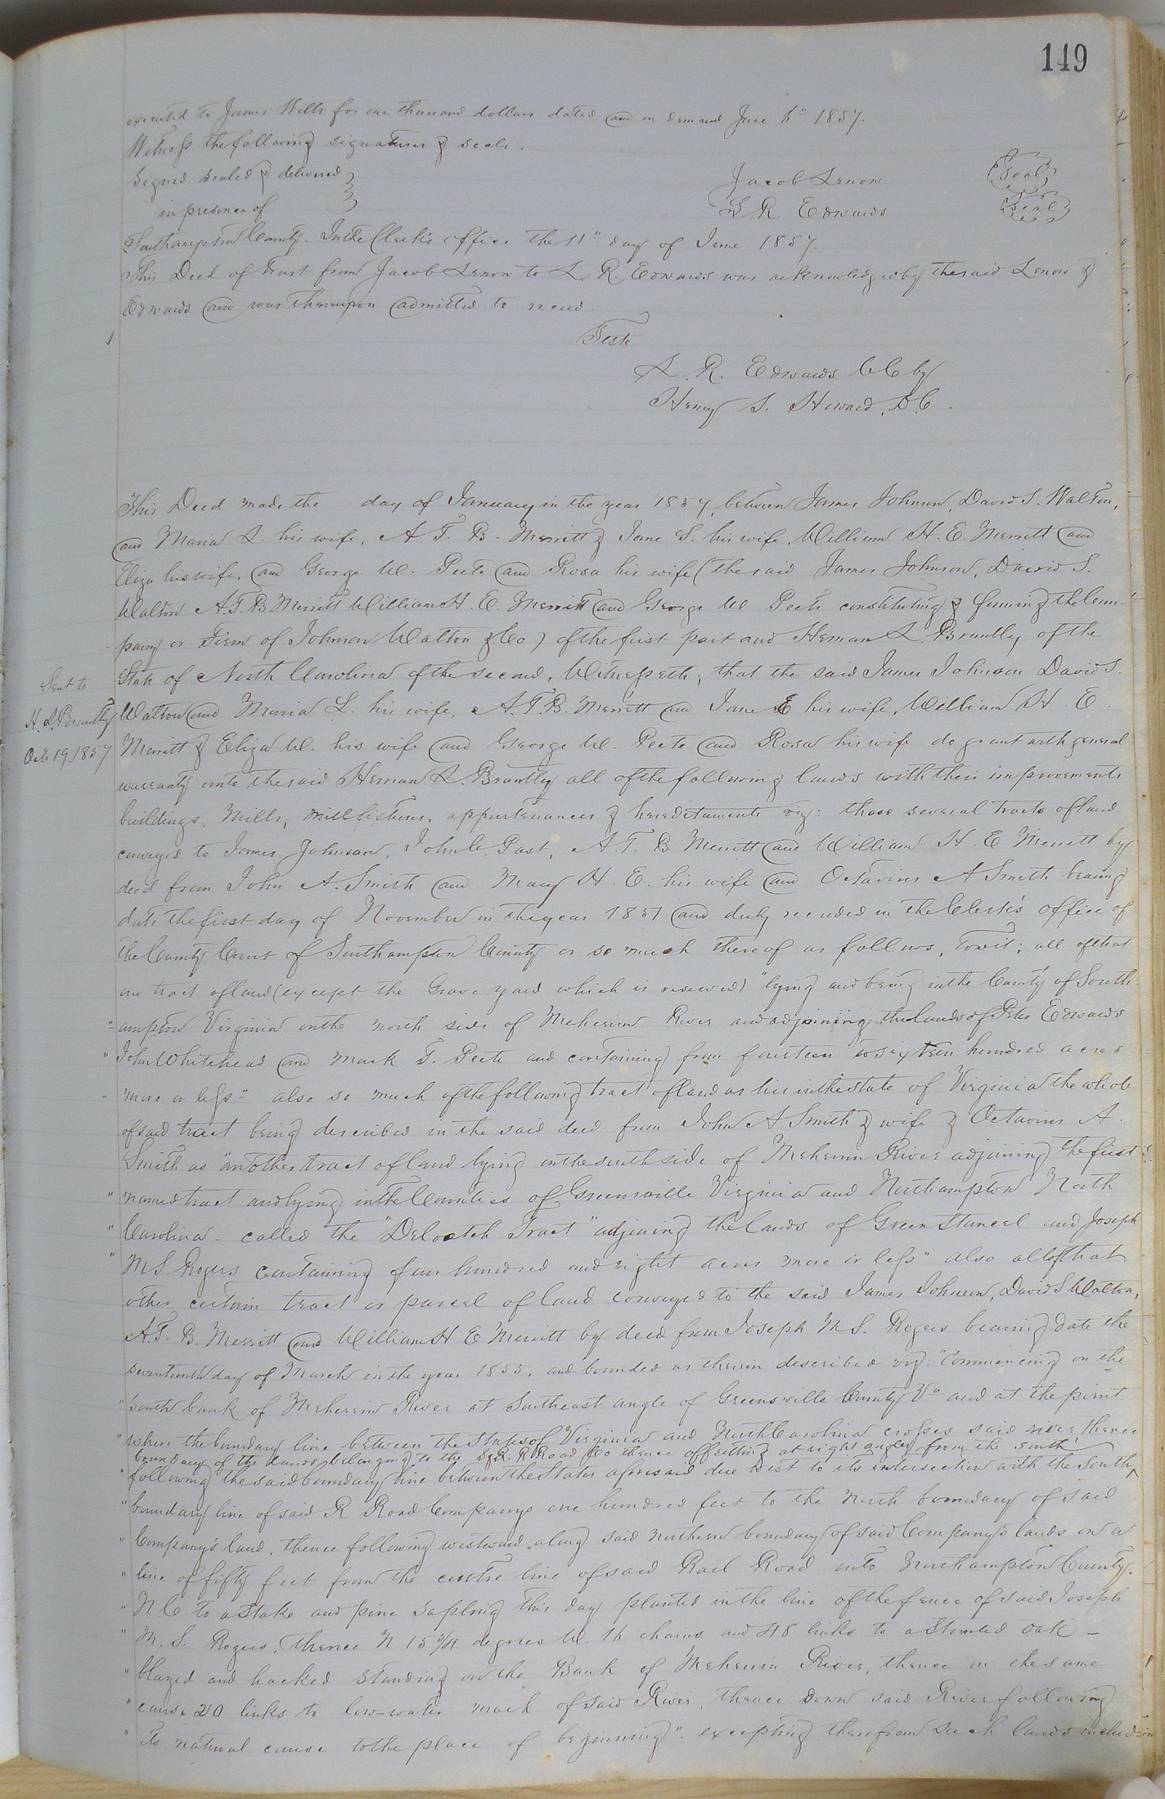 149
executed to James Wells for one thousand dollars dated and on demand June 6" 1857.
Witness the following signatures & seals.
Signed sealed & delivered
Jacob Lenow (Seal)
in presence of
L R Edwards (Seal)
Southampton County. In the Clerk's office the 11" day of June 1857.
This Deed of trust from Jacob Lenow to L. R. Edwards was acknowledged by the said Lenow &
Edwards and was thereupon admitted to record.
Teste
L. R. Edwards C C by
Henry S. Howard, D. C.
This Deed made the day of January in the year 1857, between James Johnson, David S. Walton,
and Maria L his wife, A. T. B. Merritt & Jane S. his wife, William H. E. Merritt and
Eliza his wife, and George W. Peete and Rosa his wife (the said James Johnson, David S.
Walton A T. B Merritt William H. E. Merritt and George W Peete constituting & forming the Com-
pany or Firm of Johnson Walton & Co) of the first part and Herman L Brantley of the
State of North Carolina of the second, Witnesseth, that the said James Johnson David S.
Sent to
H. L. Brantley
Oct 19, 1857
Walton and Maria L. his wife, A. T. B. Merritt and Jane E his wife, William H. E.
Merritt & Eliza W. his wife and George W. Peete and Rosa his wife do grant with general
warranty unto the said Herman L. Brantley all of the following lands with their improvements
buildings, Mills, mill fixtures, appurtenances & hereditaments viz: those several tracts of land
conveyed to James Johnson, John C. Post, A. T. B Merritt and William H. E Merritt by
deed from John A. Smith and Mary H. E. his wife and Octavius A Smith bearing
date the first day of November in the year 1851 and duly recorded in the Clerk's office of
the County Court of Southampton County or so much thereof as follows, Towit; all of that
one tract of land (except the Grave yard which is reserved) "lying and being in the County of South-
"ampton Virginia on the north side of Meherrin River and adjoining the lands of Peter Edwards
"John Whitehead and Mark T. Peete and containing from fourteen to sixteen hundred acres
"more or less" also so much of the following tract of land as lies in the State of Virginia the whole
of said tract being described in the said deed from John A Smith & wife & Octavius A.
Smith as "another tract of land lying on the south side of Meherrin River adjoining the first
"named tract and lying in the Counties of Greensville Virginia and Northampton North
"Carolina - called the "Deloatch Tract" adjoining the lands of Green Stancel and Joseph
"M. S. Rogers containing four hundred and eight acres more or less" also all of that
other certain tract or parcel of land conveyed to the said James Johnson, David S Walton,
A. T. B. Merritt and William H E Merritt by deed from Joseph M. S. Rogers bearing date the
seventeenth day of March in the year 1855, and bounded as therein described viz: "Commencing on the
"south bank of Meherrin River at Southeast angle of Greensville County Va and at the point
"where the boundary line between the States of Virginia and North Carolina crosses said river, thence
boundary of the lands belonging to the R. Road Co thence offsetting at right angles from the south
"following the said boundary line between the States aforesaid due West to its intersection with the South
"boundary line of said R Road Companys one hundred feet to the North boundary of said
"Company's land, thence following westward along said northern boundary of said Company's lands on a
"line of fifty feet from the centre line of said Rail Road into Northampton County.
"N C to a stake and pine sapling this day planted in the line of the fence of said Joseph
"M. S. Rogers, thence N 15 3/4 degrees W. 16 chains and 48 links to a Stooled oak -
"blazed and hacked standing on the Bank of Meherrin River, thence on the same
"course 20 links to low-water mark of said River, thence down said River following
"its natural course to the place of beginning". excepting therefrom such lands included in